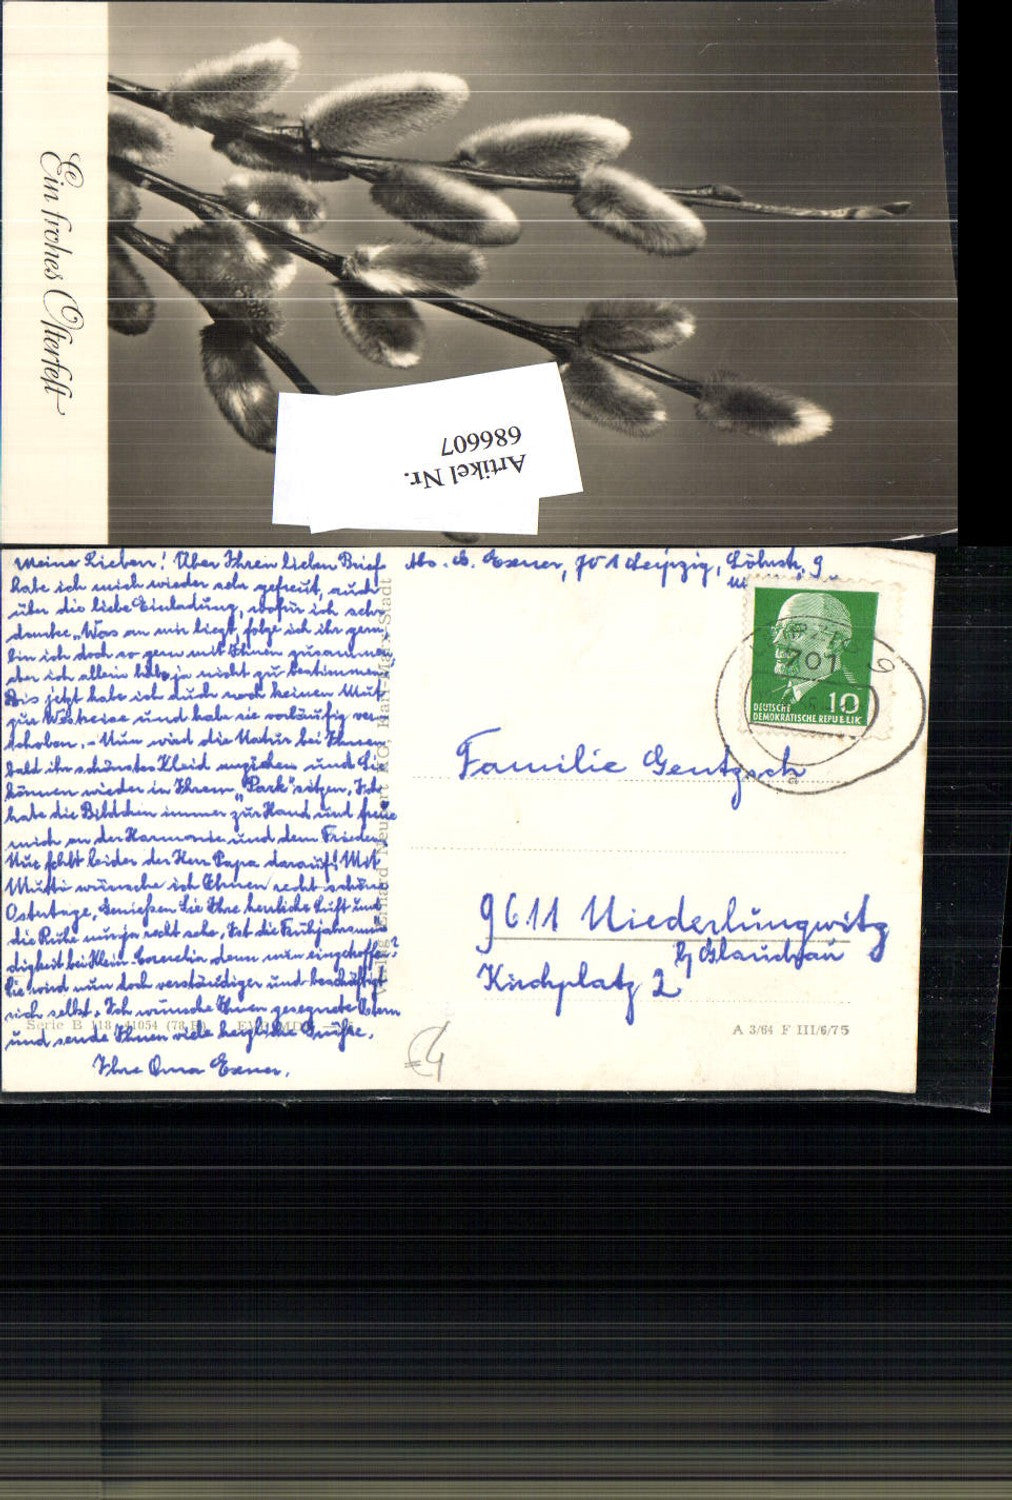 Ein frohes Osterfest
Artikel Nr.
686607
Meine Lieben! Über Ihren lieben Brief
habe ich mich wieder sehr gefreut, auch
über die liebe Einladung, wofür ich sehr
danke. Was an mir liegt, folge ich ihr gern,
bin ich doch so gern mit Ihnen zusammen
aber ich allein habe ja nicht zu bestimmen.
Bis jetzt habe ich auch noch keinen Mut
zur Westreise und habe sie vorläufig ver-
schoben. - Nun wird die Natur bei Ihnen
bald ihr schönstes Kleid anziehen und Sie
können wieder in Ihrem "Park" sitzen. Ich
habe die Bildchen immer zur Hand und freue
mich an der Harmonie und dem Frieden.
Nur fehlt leider der Herr Papa darauf! Mit
Mutti wünsche ich Ihnen recht schöne
Ostertage. Genießen Sie Ihre herrliche Luft und
die Ruhe nur ja recht sehr. Ist die Frühjahrsmü-
digkeit bei Klein- denn nun eingetroffen?
Sie wird nun doch verständiger und beschäftigt
sich selbst. Ich wünsche Ihnen gesegnete Ostern
und sende Ihnen viele herzliche Grüße.
Ihre Oma Exner.
Abs. Exner, 701 Leipzig, 9
701
9
10
DEUTSCHE
DEMOKRATISCHE REPUBLIK
Familie Gentzsch
9611 Niederlungwitz
b/ Glauchau
Kirchplatz 2
Serie B 118 41054
A 3/64 F III/6/75